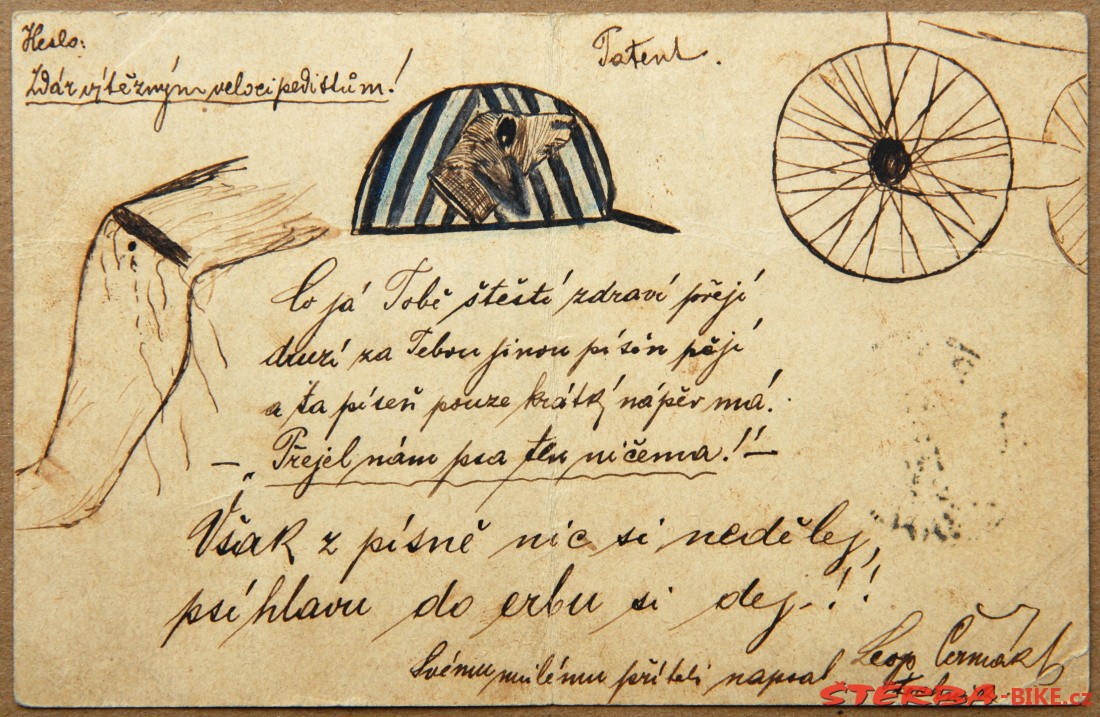 Heslo:
Zdár vítězným velocipedistům!
Patent.
Co já Tobě štěstí zdraví přejí
druzí za Tebou jinou písěn pějí
a ta píseň pouze krátký nápěv má!
— „Přejel nám psa ten ničema!" —
Však z písně nic si nedělej,
psí hlavu do erbu si dej.!!
Svému milému příteli napsal Leop Čermák
ŠTERBA-BIKE.cz